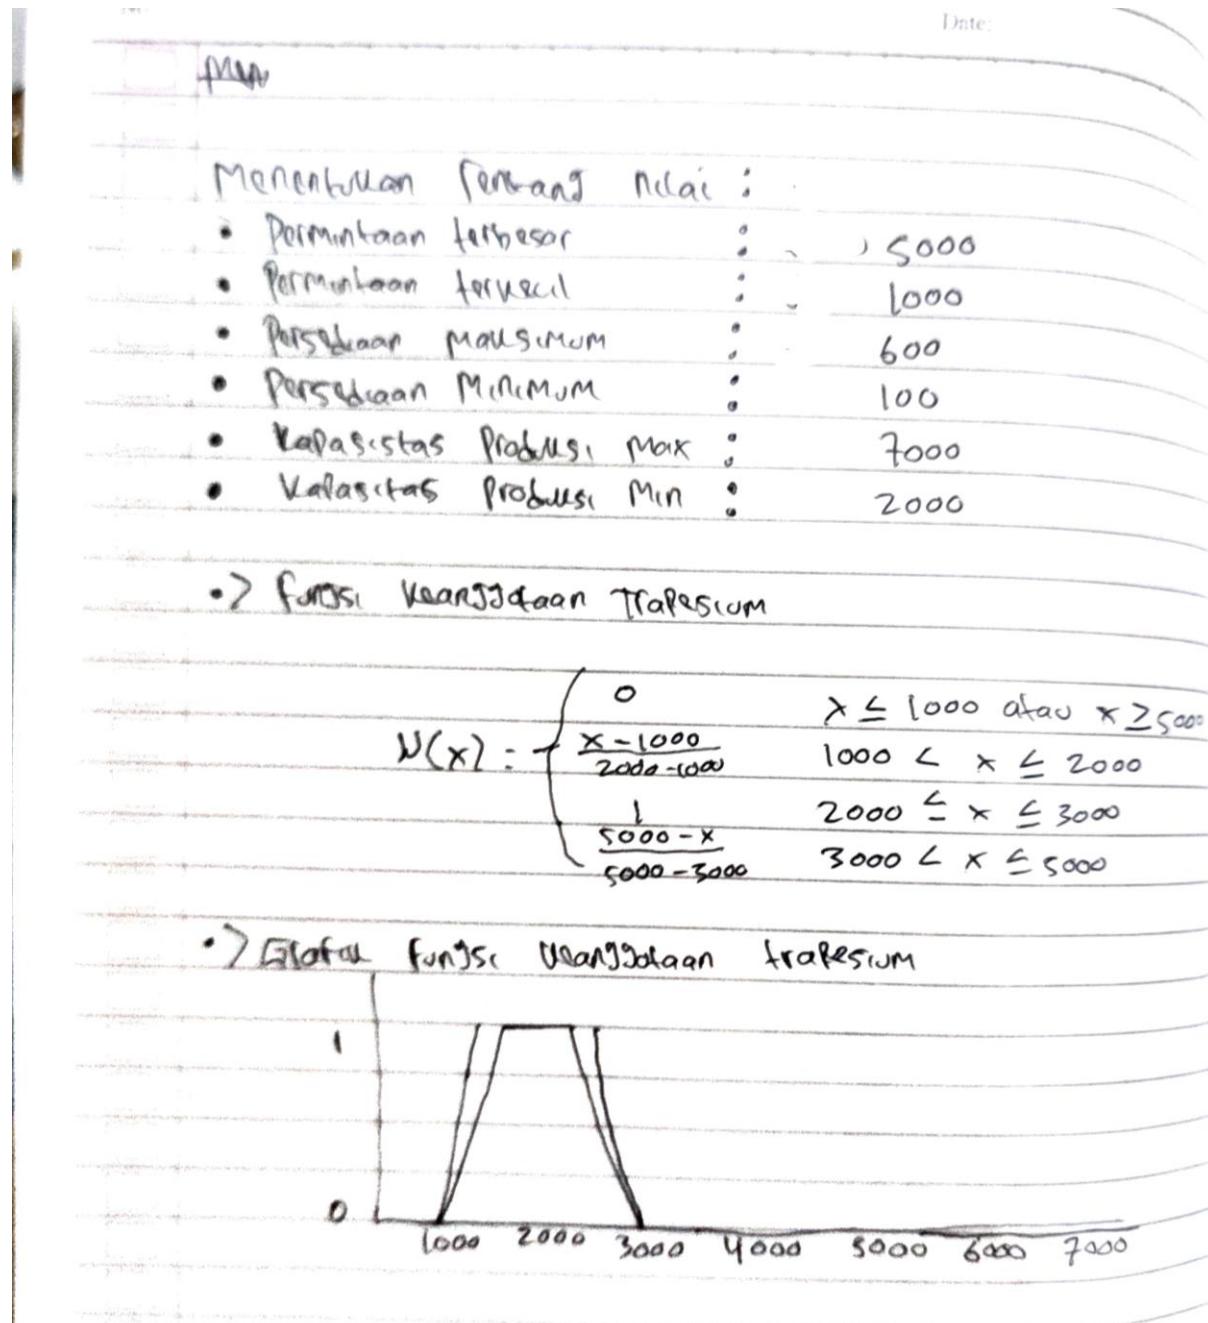 Date:
Menentukan rentang nilai :
• Permintaan terbesar : 5000
• Permintaan terkecil : 1000
• Persediaan maksimum : 600
• Persediaan Minimum : 100
• Kapasistas Produksi Max : 7000
• Kapasitas Produksi Min : 2000
•> fungsi keanggotaan Trapesium
0 x ≤ 1000 atau x ≥ 5000
N(x) : x - 1000 / 2000 - 1000 1000 < x ≤ 2000
1 2000 ≤ x ≤ 3000
5000 - x / 5000 - 3000 3000 < x ≤ 5000
•> Grafik fungsi keanggotaan trapesium
1
0
1000 2000 3000 4000 5000 6000 7000